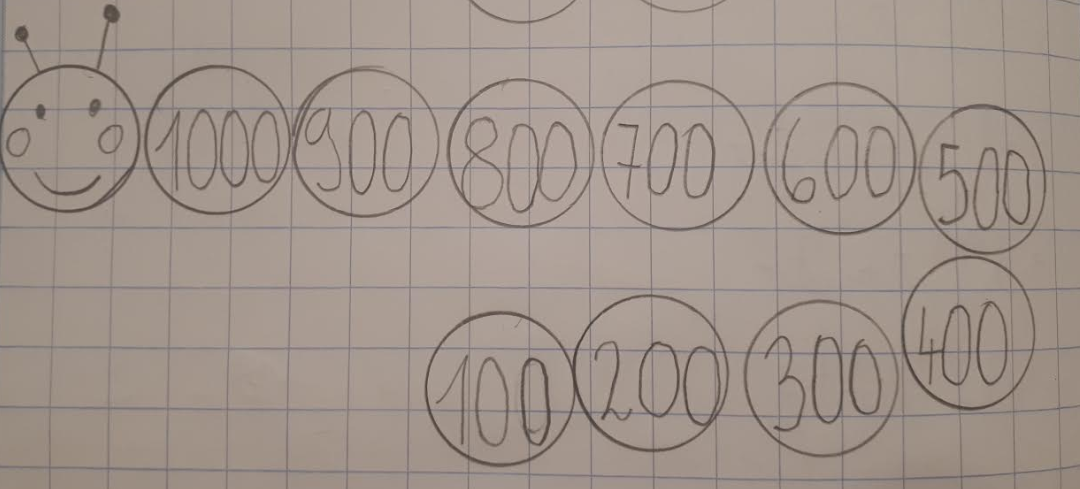 1000 900 800 700 600 500
400
100 200 300